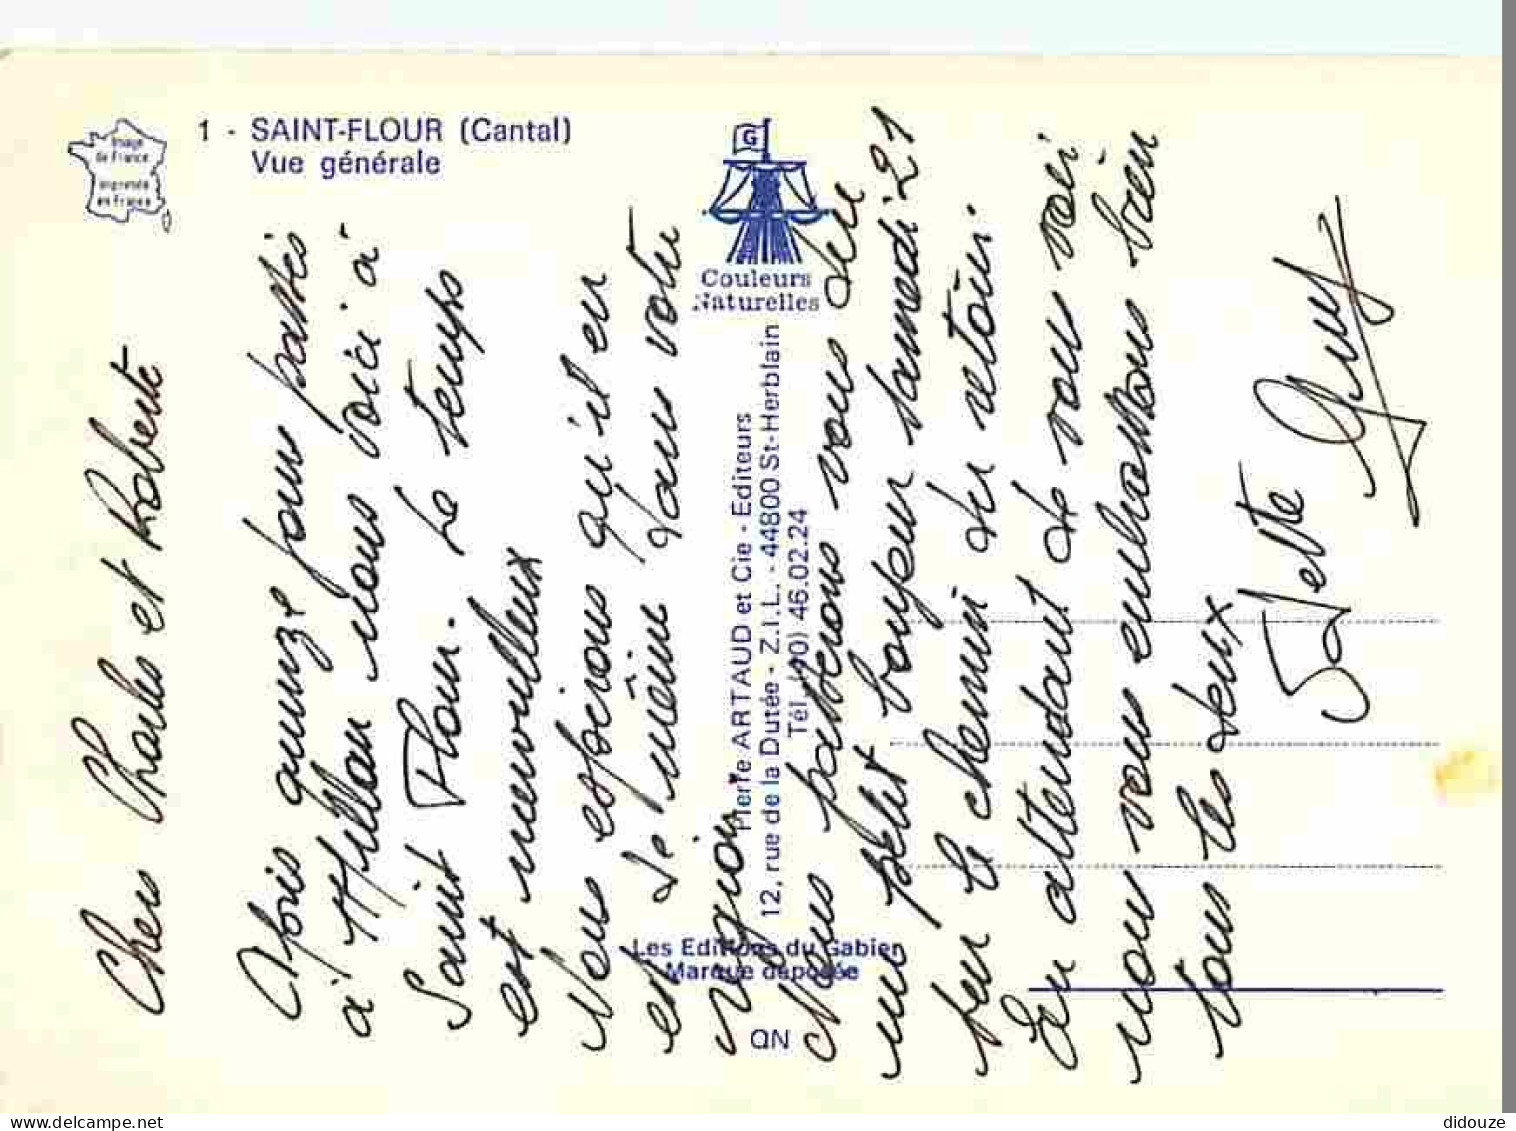 Image
de France
imprimée
en France
1 - SAINT-FLOUR (Cantal)
Vue générale
G
Couleurs
Naturelles
Pierre ARTAUD et Cie - Editeurs
12, rue de la Dutée - Z.I.L. - 44800 St-Herblain
Tél. (40) 46.02.24
Les Editions du Gabier
Marque déposée
QN
Chers Charles et Roberte
Après quinze jours passés
à Millau nous voici à
Saint Flour. Le temps
est merveilleux
Nous espérons qu'il en
est de même dans votre
région.
Nous passerons vous dire
un petit bonjour samedi 21
sur le chemin du retour.
En attendant de vous voir
nous vous embrassons bien
tous les deux
Guy
didouze